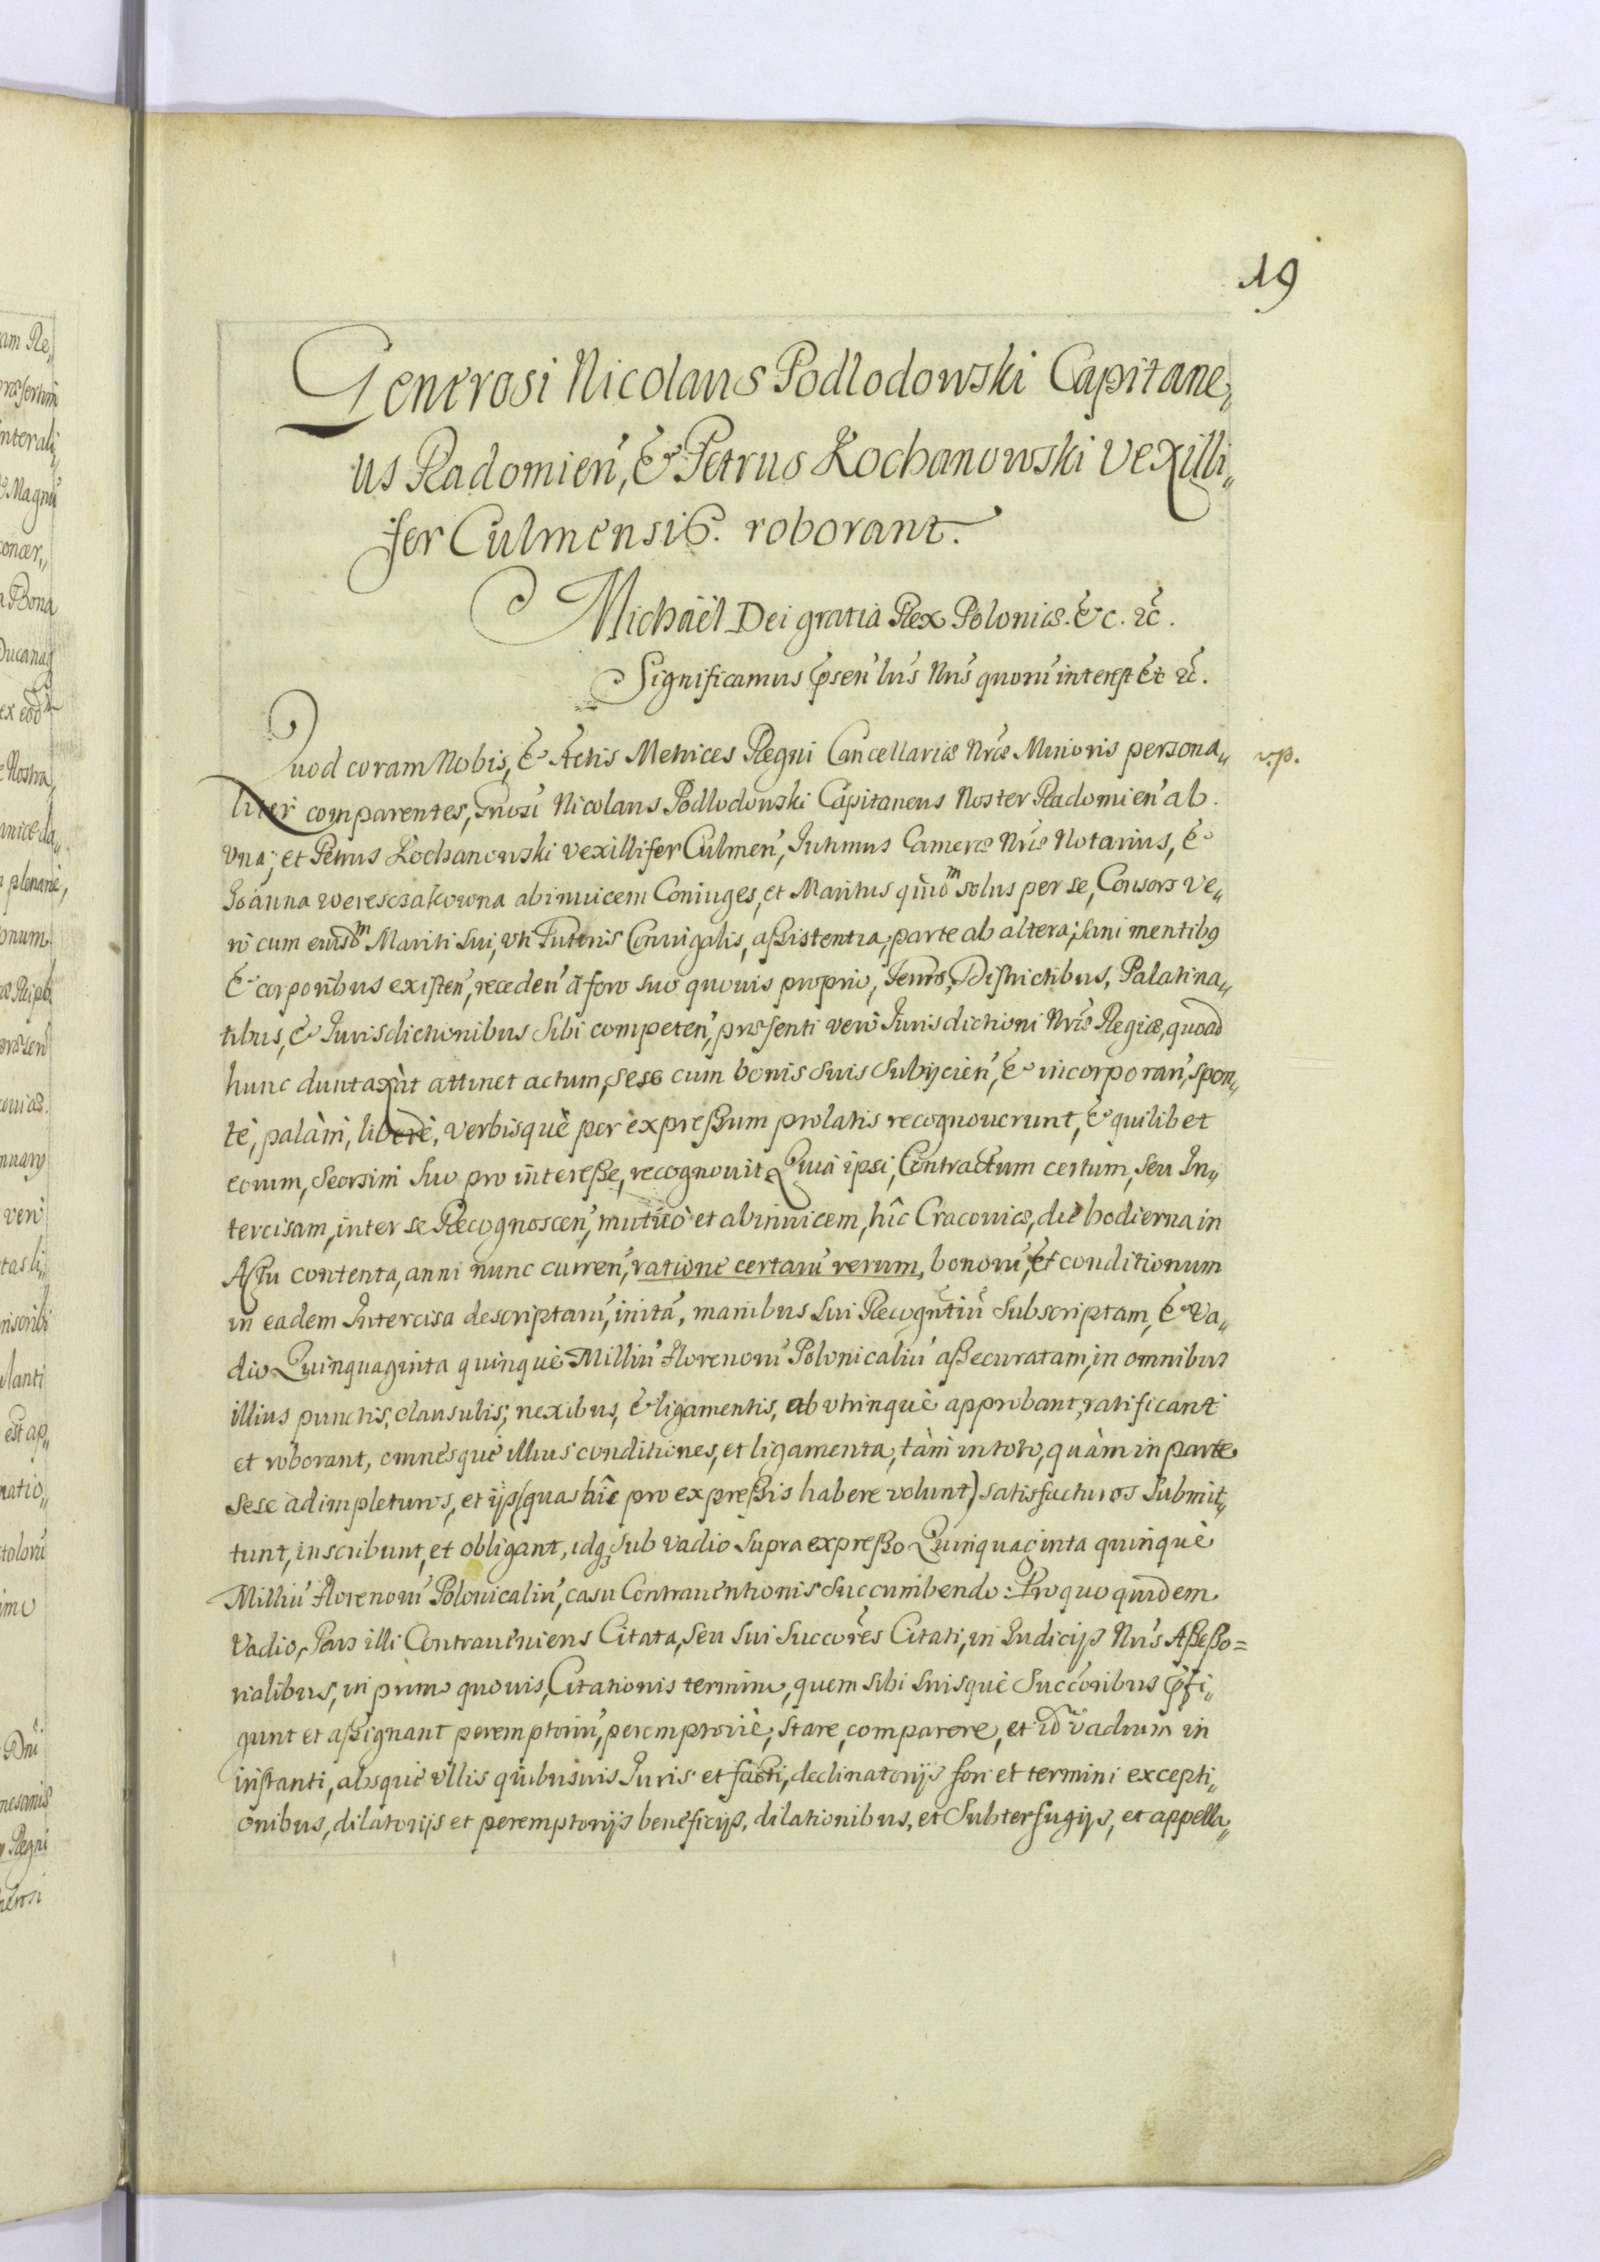 19
Generosi Nicolaus Podlodowski Capitane„
us Radomien̄, & Petrus Kochanowski Vexilli„
fer Culmensis. roborant.
Michaël Dei gratia Rex Poloniæ. &c. &c̄.
Significamus p̄sen̄ lr̄is Nr̄is quorū interest Et &c̄.
Quod coram Nobis, & Actis Metrices Regni Cancellariæ Nræ Minoris persona„
v.p.
liter comparentes, Gnosi Nicolaus Podlodowski Capitaneus Noster Radomien̄ ab
vna; et Petrus Kochanowski vexillifer Culmen̄, Intimus Cameræ Nræ Notarius, &
Joanna Weresczakowna abinuicem Coniuges, et Maritus quidm solus per se, Consors ve„
rò cum eiusdm Mariti sui, vti Tutoris Coniugalis, assistentia, parte ab altera; sani mentibus
& corporibus existen̄, receden̄ à foro suo quouis proprio, Terris, Districtibus, Palatina„
tibus, & Jurisdictionibus sibi competen̄, præsenti verò Jurisdictioni Nræ Regiæ, quoad
hunc duntaxàt attinet actum, sese cum bonis suis subijcien̄, & incorporan̄, spon„
tè, palàm, liberè, verbisquè per èxpressum prolatis recognouerunt, & quilibet
eorum, seorsim suo pro interesse, recognouit Quià ipsi, Contractum certum, seu In„
tercisam, inter se Recognoscen̄, mutuò et abinuicem, hîc Cracouiæ, diè hodierna in
Actu contenta, anni nunc curren̄, ratione certarū rerum, bonorū, et conditionum
in eadem Intercisa descriptarū, initā, manibus sui Recogn̄tiū subscriptam, & va„
dio Quinquaginta quinquè Milliū florenorū Polonicaliū assecuratam, in omnibus
illius punctis, clausulis, nexibus, & ligamentis, ab vtrinquè approbant, ratificant
et roborant, omnesquè illius conditiones, et ligamenta, tàm in toto, quàm in parte
sese adimpleturos, et ijs (quas hîc pro expressis habere volunt) satisfacturos submit„
tunt, inscribunt, et obligant, idq; sub vadio supra expresso Quinquaginta quinquè
Milliū florenorū Polonicaliū, casu Contrauentionis succumbendo: Pro quo quidem
Vadio, Pars illi Contraueniens Citata, seu sui Succores Citati, in Judicijs Nris Assesso=
rialibus, in primo quouis, Citationis termino, quem sibi suisquè Succoribus p̄fi„
gunt et assignant peremptoriū, peremptoriè, stare, comparere, et id vadium in
instanti, absquè vllis quibusuis Juris et facti, declinatorijs fori et termini excepti„
onibus, dilatorijs et peremptorijs beneficijs, dilationibus, et subterfugijs, et appella„